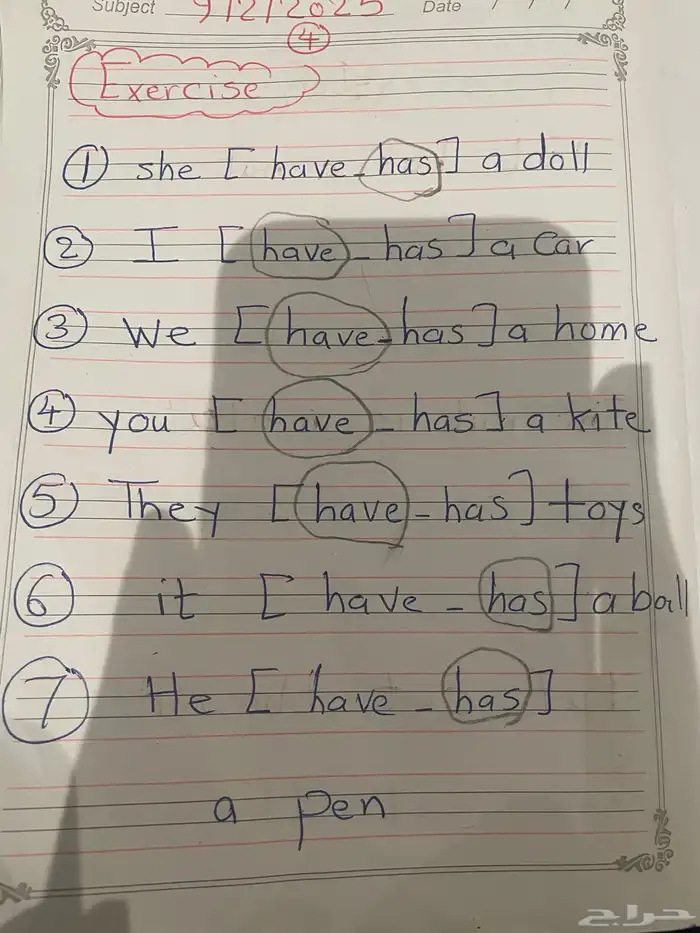 Subject 9/2/2025 Date / / /
4
Exercise
1 she [ have - has ] a doll
2 I [ have - has ] a Car
3 We [ have - has ] a home
4 you [ have - has ] a kite
5 They [ have - has ] toys
6 it [ have - has ] a ball
7 He [ have - has ]
a pen
حراج